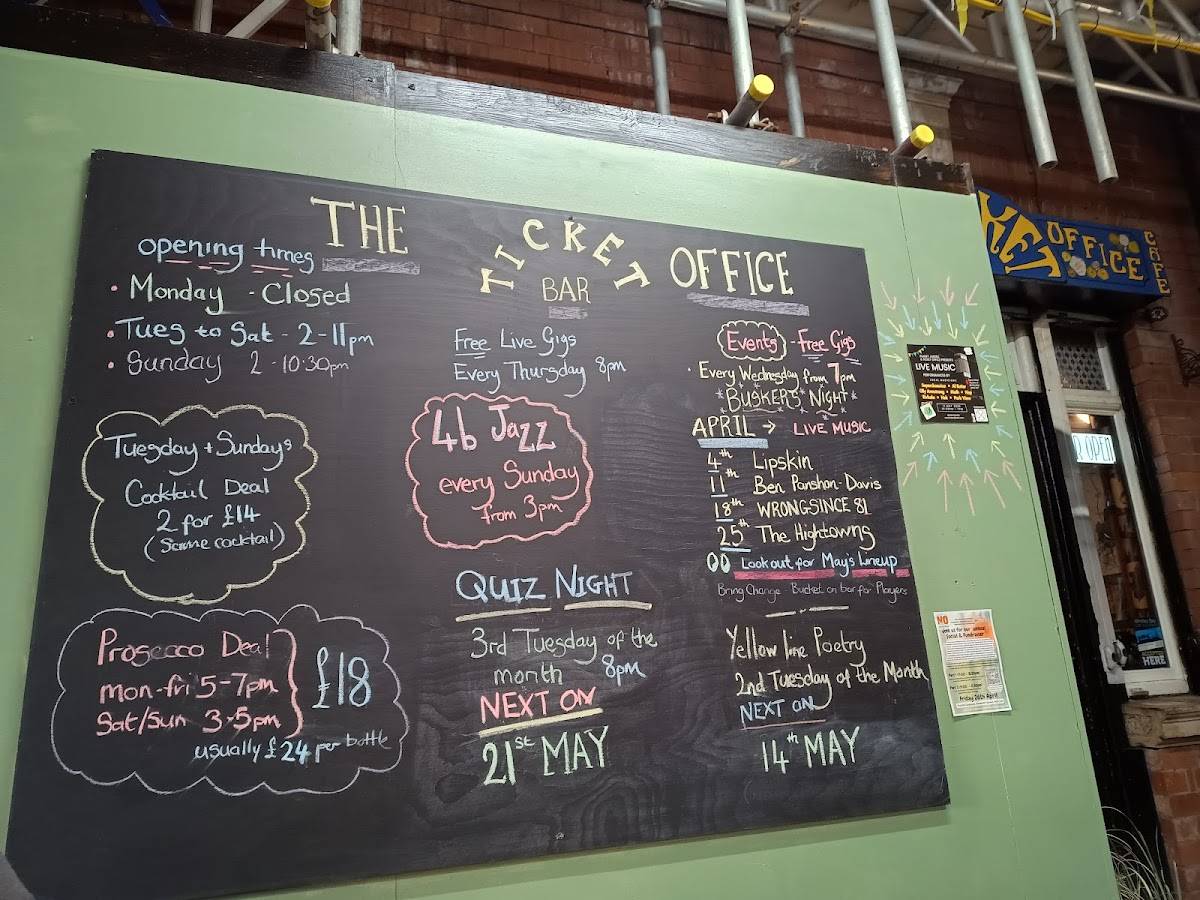 THE TICKET OFFICE
BAR
opening times
• Monday - Closed
• Tues to Sat - 2-11pm
• Sunday 2-10:30pm
Tuesday + Sundays
Cocktail Deal
2 for £14
(Same cocktail)
Prosecco Deal
mon-fri 5-7pm
Sat/Sun 3-5pm
£18
usually £24 per bottle
Free Live Gigs
Every Thursday 8pm
4b Jazz
every Sunday
from 3pm
QUIZ NIGHT
3rd Tuesday of the
month 8pm
NEXT ON
21st MAY
Events - Free Gigs
• Every Wednesday from 7pm
BUSKERS NIGHT
APRIL → LIVE MUSIC
4th Lipskin
11th Ben Parshon-Davis
18th WRONGSINCE 81
25th The Hightowns
Look out for May's Lineup
Bring Change Bucket on bar for Players
Yellow line Poetry
2nd Tuesday of the Month
NEXT ON
14th MAY
LIVE MUSIC
NO
Friday 26th April
KET OFFICE CAFE
OPEN
HERE